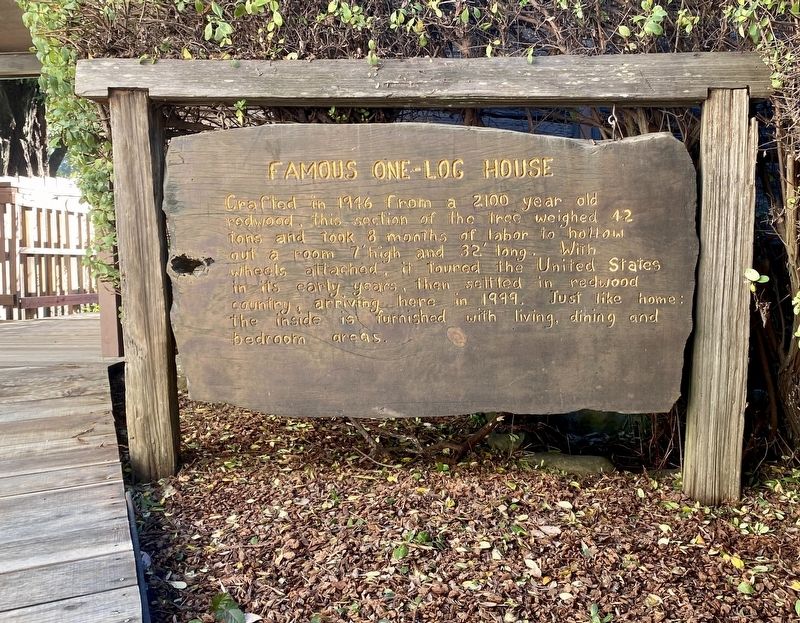 FAMOUS ONE-LOG HOUSE
Crafted in 1946 from a 2100 year old
redwood, this section of the tree weighed 42
tons and took 8 months of labor to hollow
out a room 7' high and 32' long. With
wheels attached, it toured the United States
in its early years, then settled in redwood
country, arriving here in 1999. Just like home:
the inside is furnished with living, dining and
bedroom areas.